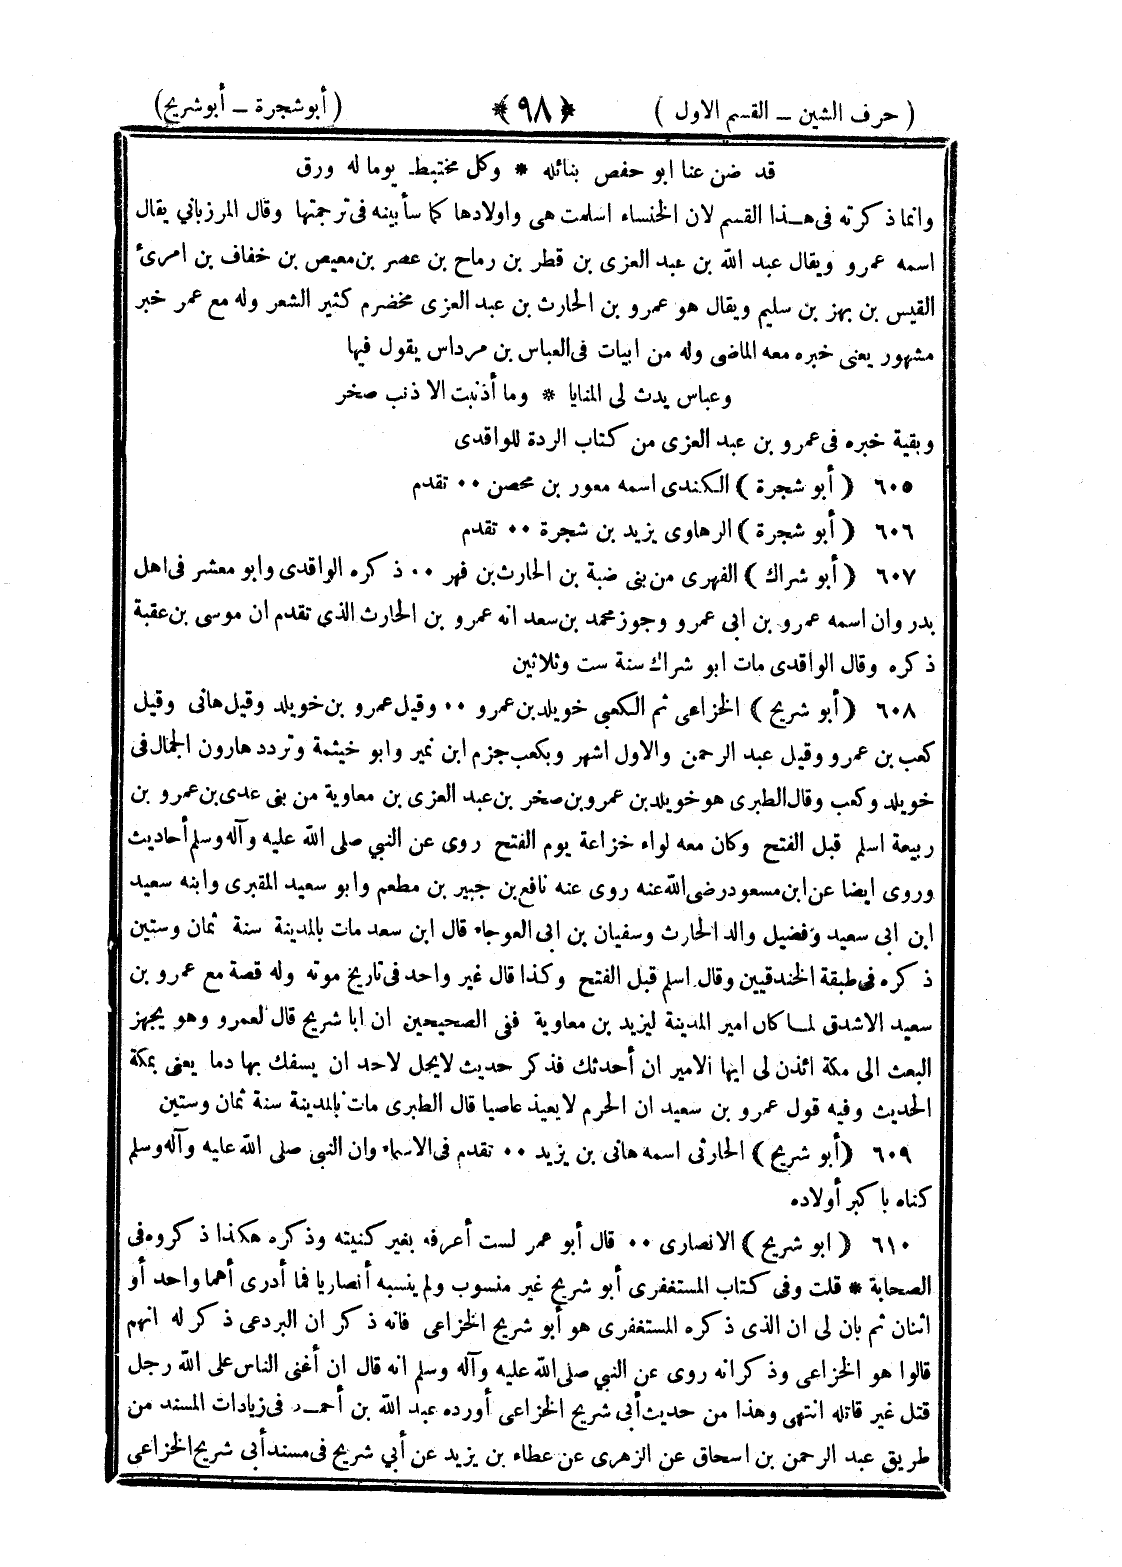 ( حرف الشين ـ القسم الاول ) ﴿ ٩٨ ﴾ ( أبوشجرة ـ أبوشريح )
قد ضن عنا ابو حفص بنائله * وكل مختبط يوما له ورق
وانما ذكرته فى هـذا القسم لان الخنساء اسلمت هى واولادها كما سأبينه فى ترجمتها وقال المرزباني يقال
اسمه عمرو ويقال عبد الله بن عبد العزى بن قطر بن رماح بن عصر بن معيص بن خفاف بن امرئ
القيس بن بهز بن سليم ويقال هو عمرو بن الحارث بن عبد العزى مخضرم كثير الشعر وله مع عمر خبر
مشهور يعنى خبره معه الماضى وله من ابيات فى العباس بن مرداس يقول فيها
وعباس يدث لى المنايا * وما أذنبت الا ذنب صخر
وبقية خبره فى عمرو بن عبد العزى من كتاب الردة للواقدى
٦٠٥ ( أبو شجرة ) الكندى اسمه معور بن محصن ٠٠ تقدم
٦٠٦ ( أبو شجرة ) الرهاوى يزيد بن شجرة ٠٠ تقدم
٦٠٧ ( أبو شراك ) الفهرى من بنى ضبة بن الحارث بن فهر ٠٠ ذكره الواقدى وابو معشر فى اهل
بدر وان اسمه عمرو بن ابى عمرو وجوز محمد بن سعد انه عمرو بن الحارث الذي تقدم ان موسى بن عقبة
ذكره وقال الواقدى مات ابو شراك سنة ست وثلاثين
٦٠٨ ( أبو شريح ) الخزاعى ثم الكعبى خويلد بن عمرو ٠٠ وقيل عمرو بن خويلد وقيل هانى وقيل
كعب بن عمرو وقيل عبد الرحمن والاول اشهر وبكعب جزم ابن نمير وابو خيثمة وتردد هارون الجمال فى
خويلد وكعب وقال الطبرى هو خويلد بن عمرو بن صخر بن عبد العزى بن معاوية من بنى عدى بن عمرو بن
ربيعة اسلم قبل الفتح وكان معه لواء خزاعة يوم الفتح روى عن النبي صلى الله عليه وآله وسلم أحاديث
وروى ايضا عن ابن مسعود رضى الله عنه روى عنه نافع بن جبير بن مطعم وابو سعيد المقبرى وابنه سعيد
ابن ابى سعيد وفضيل والد الحارث وسفيان بن ابى العوجاء قال ابن سعد مات بالمدينة سنة ثمان وستين
ذكره فى طبقة الخندقيين وقال اسلم قبل الفتح وكذا قال غير واحد فى تاريخ موته وله قصة مع عمرو بن
سعيد الاشدق لما كان امير المدينة ليزيد بن معاوية ففى الصحيحين ان ابا شريح قال لعمرو وهو يجهز
البعث الى مكة ائذن لى ايها الامير ان أحدثك فذكر حديث لايحل لاحد ان يسفك بها دما يعنى بمكة
الحديث وفيه قول عمرو بن سعيد ان الحرم لا يعيذ عاصيا قال الطبرى مات بالمدينة سنة ثمان وستين
٦٠٩ ( أبو شريح ) الحارثى اسمه هانى بن يزيد ٠٠ تقدم فى الاسماء وان النبى صلى الله عليه وآله وسلم
كناه باكبر أولاده
٦١٠ ( ابو شريح ) الانصارى ٠٠ قال أبو عمر لست أعرفه بغير كنيته وذكره هكذا ذكروه فى
الصحابة * قلت وفى كتاب المستغفرى أبو شريح غير منسوب ولم ينسبه أنصاريا فما أدرى أهما واحد أو
اثنان ثم بان لى ان الذى ذكره المستغفرى هو أبو شريح الخزاعى فانه ذكر ان البردعى ذكر له انهم
قالوا هو الخزاعى وذكر انه روى عن النبي صلى الله عليه وآله وسلم انه قال ان أغنى الناس على الله رجل
قتل غير قاتله انتهى وهذا من حديث أبى شريح الخزاعى أورده عبد الله بن أحمـد فى زيادات المسند من
طريق عبد الرحمن بن اسحاق عن الزهرى عن عطاء بن يزيد عن أبي شريح فى مسند أبى شريح الخزاعى